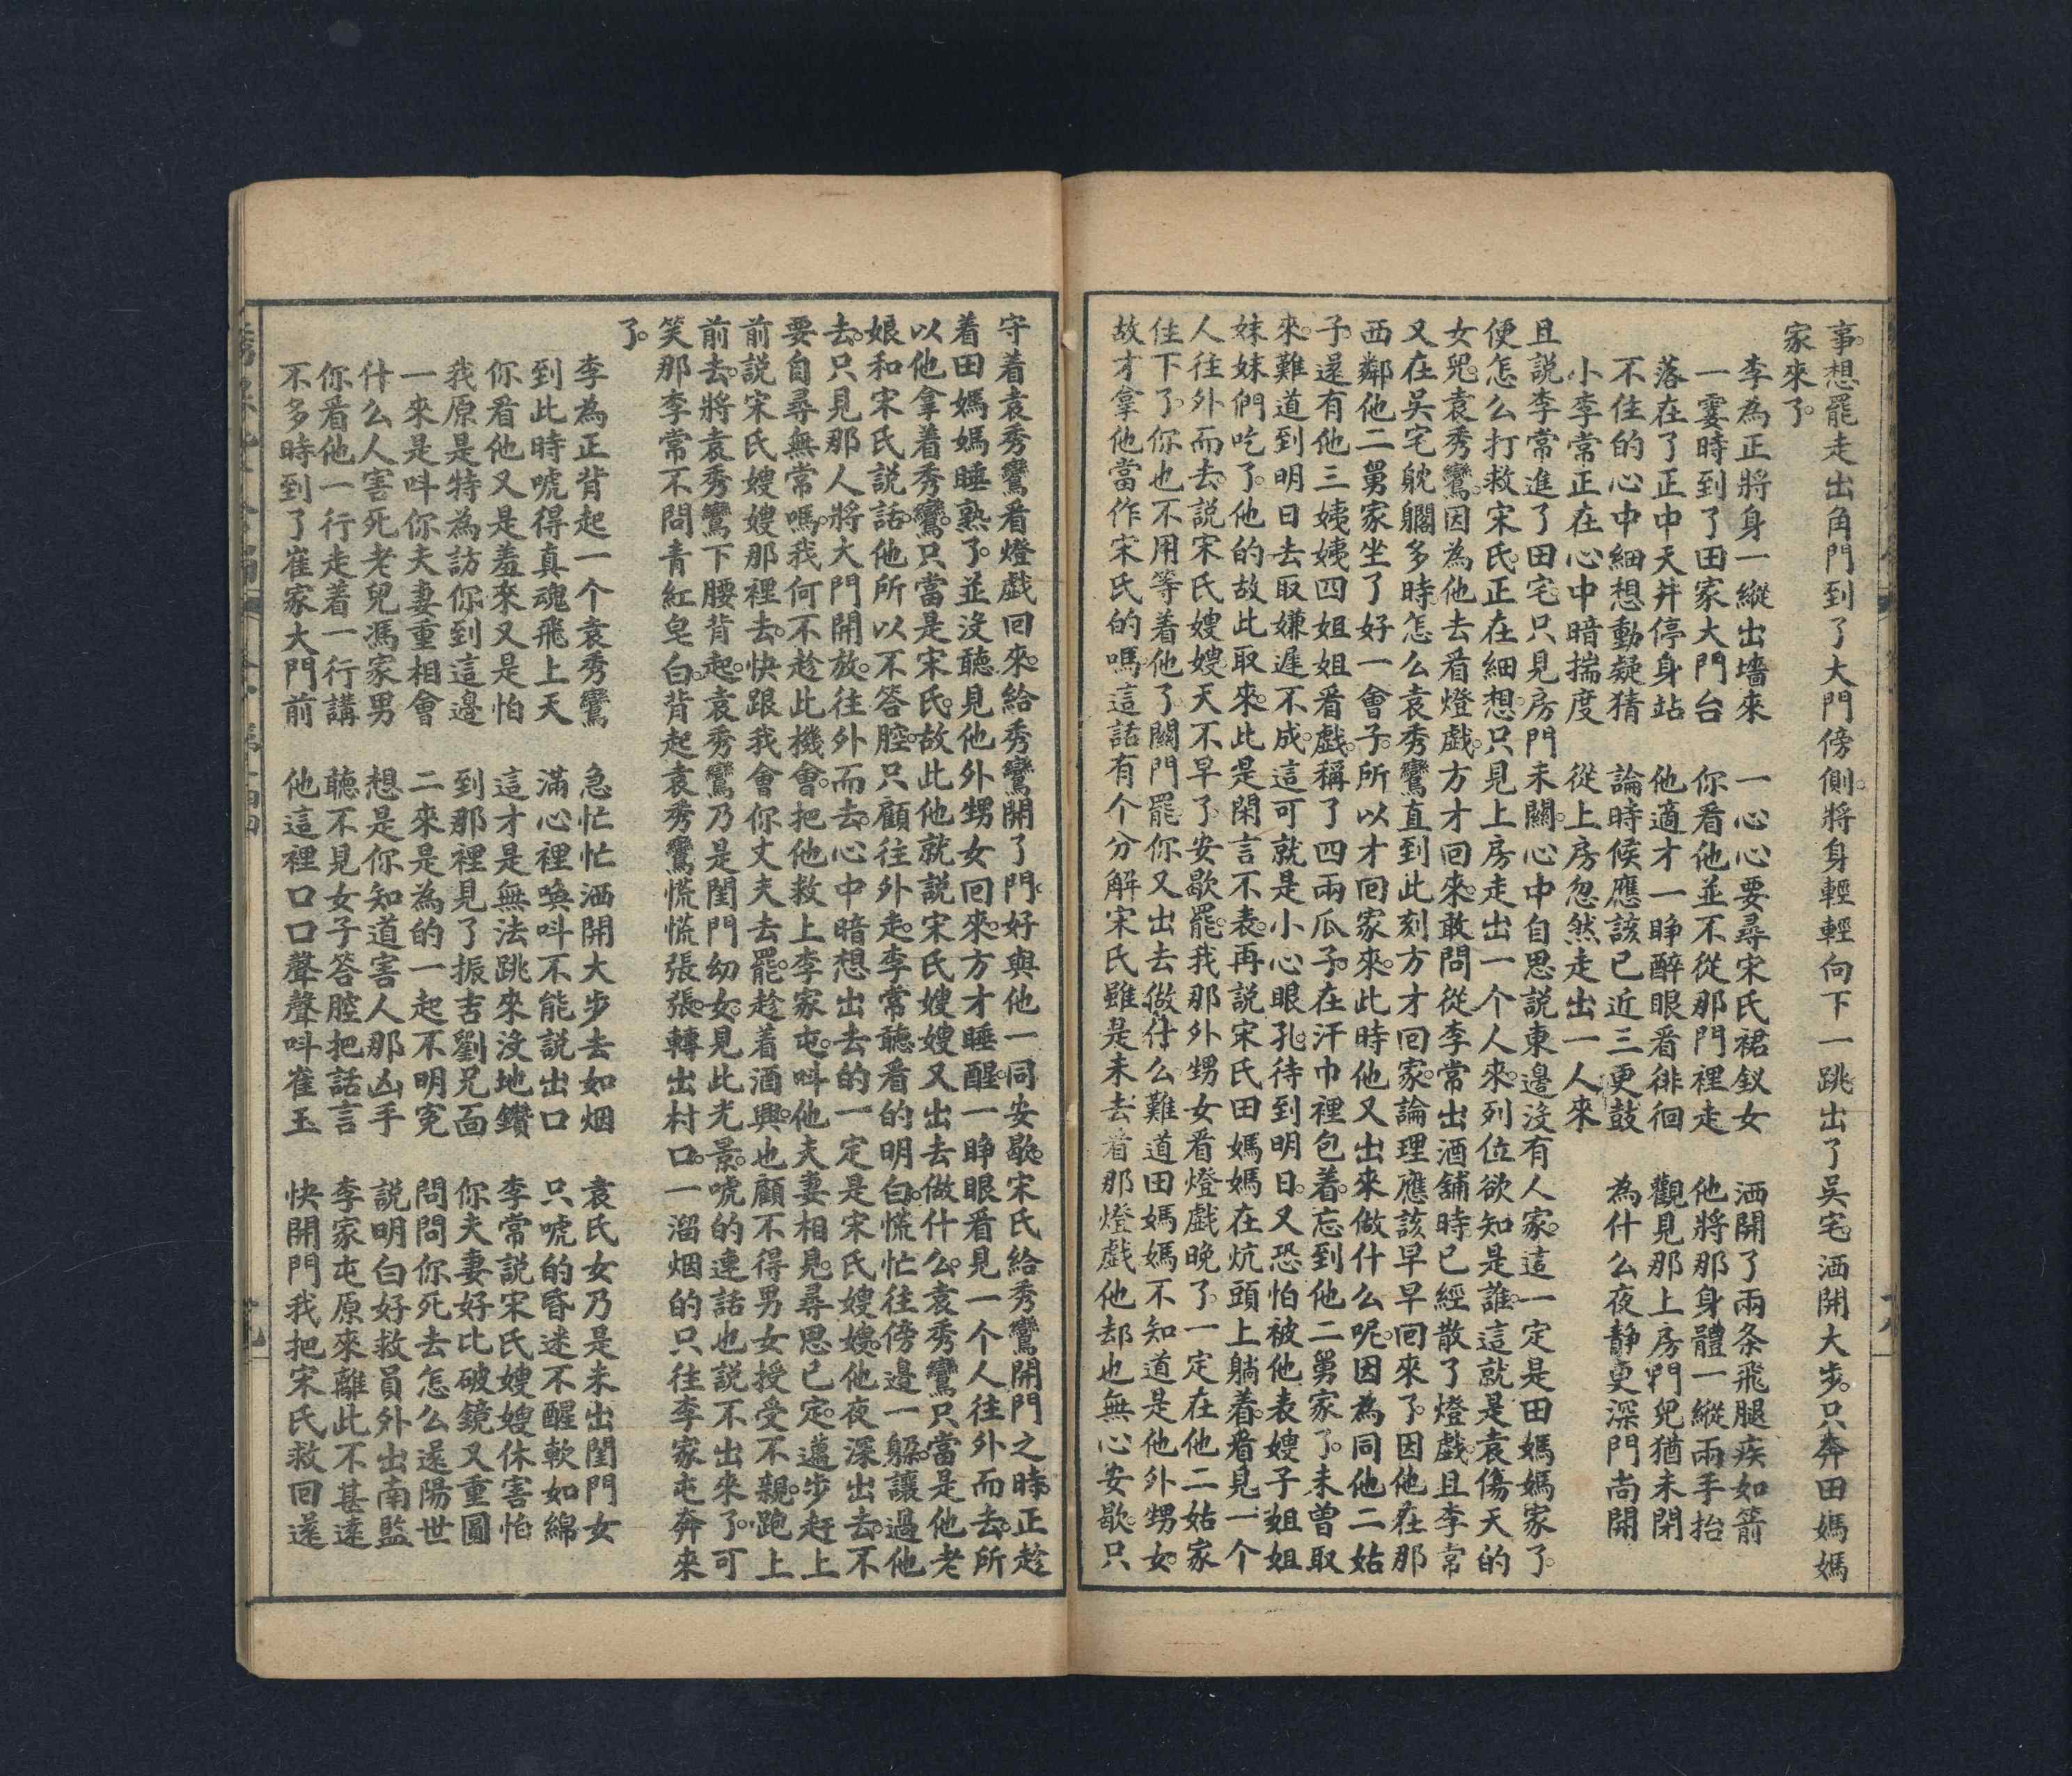 事。想罷走出角門到了大門傍側。將身輕輕向下一跳出了吳宅。洒開大步。只奔田媽媽
家來了。
李為正將身一縱出墻來　一心心要尋宋氏裙釵女　洒開了兩条飛腿疾如箭
一霎時到了田家大門台　你看他並不從那門裡走　他將那身體一縱兩手抬
落在了正中天井停身站　他適才一睜醉眼看徘徊　觀見那上房門兒猶未閉
不住的心中細想動疑猜　論時候應該已近三更鼓　為什么夜静更深門尚開
小李常正在心中暗揣度　從上房忽然走出一人來
且說李常進了田宅。只見房門未關。心中自思說東邊沒有人家。這一定是田媽媽家了。
便怎么打救宋氏。正在細想。只見上房走出一个人來。列位欲知是誰。這就是袁傷天的
女兒。袁秀鸞。因為他去看燈戲。方才回來。敢問從李常出酒舖時。已經散了燈戲。且李常
又在吳宅躭擱多時。怎么袁秀鸞直到此刻方才回家。論理應該早早回來了。因他在那
西鄰他二舅家坐了好一會子。所以才回家來。此時他又出來做什么呢。因為同他二姑
子。還有他三姨姨四姐姐看戲。稱了四兩瓜子。在汗巾裡包着。忘到他二舅家了。未曾取
來。難道到明日去取嫌遲不成。這可就是小心眼孔。待到明日。又恐怕被他表嫂子姐姐
妹妹們吃了。他的故此取來。此是閑言不表。再說宋氏田媽媽在炕頭上躺着。看見一个
人往外而去。說宋氏嫂嫂。天不早了。安歇罷。我那外甥女看燈戲晚了。一定在他二姑家
住下了。你也不用等着他了。關門罷你又出去做什么難道田媽媽不知道是他外甥女。
故才拿他當作宋氏的嗎。這話有个分解宋氏雖是未去看那燈戲他却也無心安歇。只
守着袁秀鸞看燈戲回來。給秀鸞開了門。好與他一同安歇。宋氏給秀鸞開門之時。正趁
着田媽媽睡熟了。並沒聽見他外甥女回來。方才睡醒。一睜眼看見一个人往外而去。所
以他拿着秀鸞。只當是宋氏。故此他就說宋氏嫂嫂又出去做什么。袁秀鸞只當是他老
娘和宋氏說話。他所以不答腔。只顧往外走。李常聽看的明白。慌忙往傍邊一躲。讓過他
去。只見那人將大門開放。往外而去。心中暗想出去的一定是宋氏嫂嫂。他夜深出去。不
要自尋無常嗎。我何不趁此機會。把他救上李家屯。呌他夫妻相見。尋思已定。邁步赶上
前說宋氏嫂嫂那裡去。快跟我會你丈夫去罷。趁着酒興。也顧不得男女授受不親。跑上
前去。將袁秀鸞下腰背起。袁秀鸞乃是閨門幼女。見此光景。唬的連話也說不出來了。可
笑那李常不問青紅皂白。背起袁秀鸞慌慌張張。轉出村口。一溜烟的只往李家屯奔來
了。
李為正背起一个袁秀鸞　急忙忙洒開大步去如烟　袁氏女乃是未出閨門女
到此時唬得真魂飛上天　滿心裡喚呌不能說出口　只唬的昏迷不醒軟如綿
你看他又是羞來又是怕　這才是無法跳來沒地鑽　李常說宋氏嫂嫂休害怕
我原是特為訪你到這邊　到那裡見了振吉劉兄面　你夫妻好比破鏡又重圓
一來是呌你夫妻重相會　二來是為的一起不明寃　問問你死去怎么還陽世
什么人害死老兒馮家男　想是你知道害人那凶手　說明白好救員外出南監
你看他一行走着一行講　聽不見女子答腔把話言　李家屯原來離此不甚遠
不多時到了崔家大門前　他這裡口口聲聲呌崔玉　快開門我把宋氏救回還